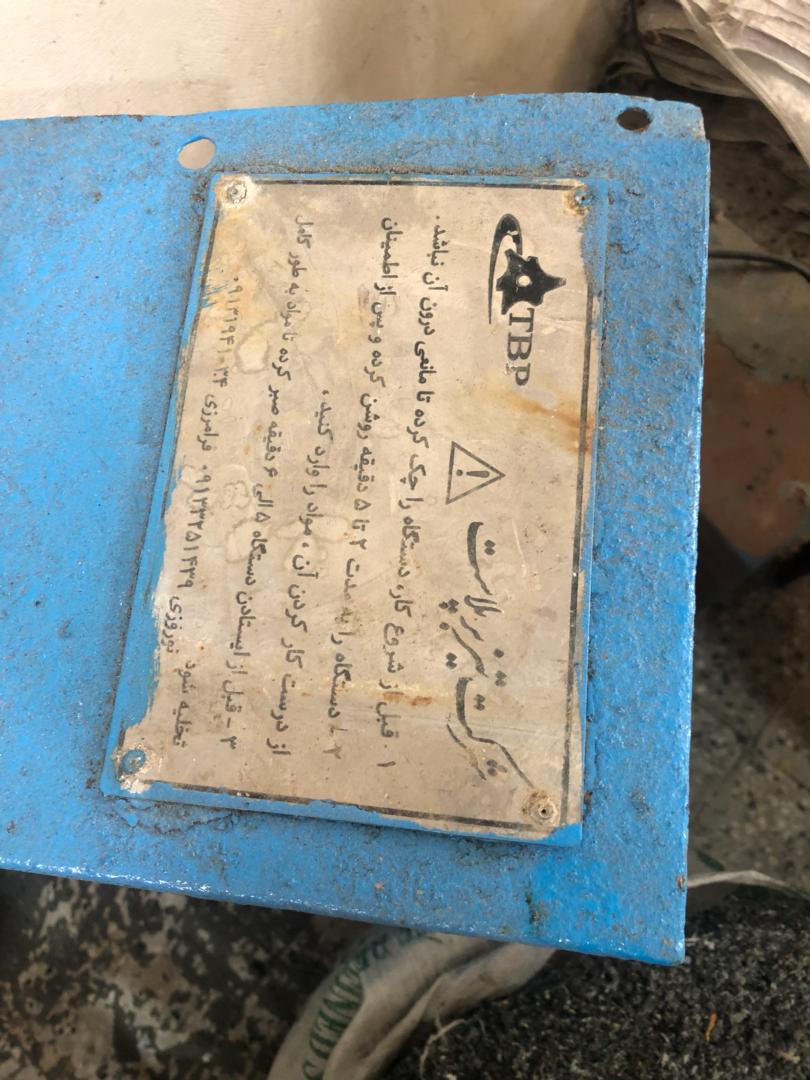 TBP
شرکت تیزبر پلاست
۱ . قبل از شروع کار، دستگاه را چک کرده تا مانعی درون آن نباشد.
۲ - دستگاه را به مدت ۲ تا ۵ دقیقه روشن کرده و پس از اطمینان
از درست کار کردن آن ، مواد را وارد کنید .
۳ - قبل از ایستادن دستگاه ۵ الی ۶ دقیقه صبر کرده تا مواد به طور کامل
تخلیه شود نوروزی ۰۹۱۳۳۲۵۱۴۳۹ فرامرزی ۰۹۱۳۶۹۴۱۰۳۴